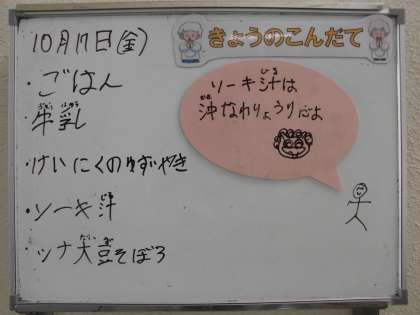 きょうのこんだて
10月17日(金)
・ごはん
・牛乳
・けいにくのゆずやき
・ソーキ汁
・ツナ大豆そぼろ
ソーキ汁は
沖なわりょうりだよ